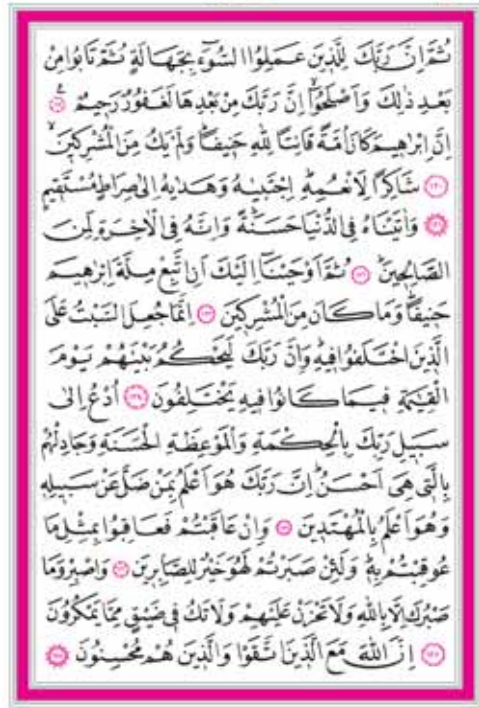 ثُمَّ اِنَّ رَبَّكَ لِلَّذٖينَ عَمِلُوا السُّٓوءَ بِجَهَالَةٍ ثُمَّ تَابُوا مِنْ
بَعْدِ ذٰلِكَ وَاَصْلَحُٓوا اِنَّ رَبَّكَ مِنْ بَعْدِهَا لَغَفُورٌ رَحٖيمٌ ﴿١١٩﴾
اِنَّ اِبْرٰهٖيمَ كَانَ اُمَّةً قَانِتًا لِلّٰهِ حَنٖيفًا وَلَمْ يَكُ مِنَ الْمُشْرِكٖينَ
﴿١٢٠﴾ شَاكِرًا لِاَنْعُمِهٖ اِجْتَبٰيهُ وَهَدٰيهُ اِلٰى صِرَاطٍ مُسْتَقٖيمٍ
﴿١٢١﴾ وَاٰتَيْنَاهُ فِى الدُّنْيَا حَسَنَةً وَاِنَّهُ فِى الْاٰخِرَةِ لَمِنَ
الصَّالِحٖينَ ﴿١٢٢﴾ ثُمَّ اَوْحَيْنَٓا اِلَيْكَ اَنِ اتَّبِعْ مِلَّةَ اِبْرٰهٖيمَ
حَنٖيفًا وَمَا كَانَ مِنَ الْمُشْرِكٖينَ ﴿١٢٣﴾ اِنَّمَا جُعِلَ السَّبْتُ عَلَى
الَّذٖينَ اخْتَلَفُوا فٖيهِ وَاِنَّ رَبَّكَ لَيَحْكُمُ بَيْنَهُمْ يَوْمَ
الْقِيٰمَةِ فٖيمَا كَانُوا فٖيهِ يَخْتَلِفُونَ ﴿١٢٤﴾ اُدْعُ اِلٰى
سَبٖيلِ رَبِّكَ بِالْحِكْمَةِ وَالْمَوْعِظَةِ الْحَسَنَةِ وَجَادِلْهُمْ
بِالَّتٖى هِىَ اَحْسَنُ اِنَّ رَبَّكَ هُوَ اَعْلَمُ بِمَنْ ضَلَّ عَنْ سَبٖيلِهٖ
وَهُوَ اَعْلَمُ بِالْمُهْتَدٖينَ ﴿١٢٥﴾ وَاِنْ عَاقَبْتُمْ فَعَاقِبُوا بِمِثْلِ مَا
عُوقِبْتُمْ بِهٖ وَلَئِنْ صَبَرْتُمْ لَهُوَ خَيْرٌ لِلصَّابِرٖينَ ﴿١٢٦﴾ وَاصْبِرْ وَمَا
صَبْرُكَ اِلَّا بِاللّٰهِ وَلَا تَحْزَنْ عَلَيْهِمْ وَلَا تَكُ فٖى ضَيْقٍ مِمَّا يَمْكُرُونَ
﴿١٢٧﴾ اِنَّ اللّٰهَ مَعَ الَّذٖينَ اتَّقَوْا وَالَّذٖينَ هُمْ مُحْسِنُونَ ﴿١٢٨﴾